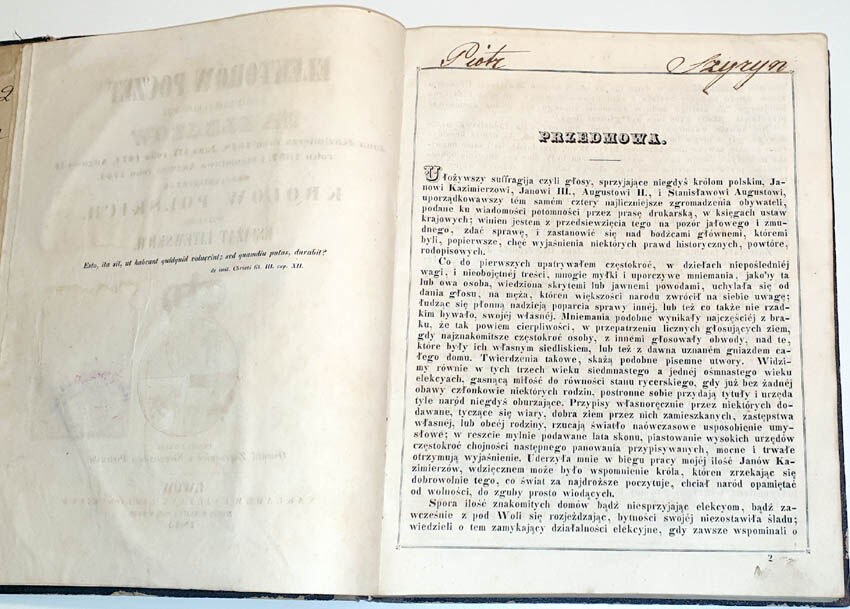 Esto, ita sit, ut habeant quidquid voluerint; sed quamdiu putas, durabit?
de imit. Christi lib. III. cap. XII.
Piotr Szyryn
PRZEDMOWA.
Ułożywszy suffragija czyli głosy, sprzyjające niegdyś królom polskim, Ja-
nowi Kazimierzowi, Janowi III., Augustowi II., i Stanisławowi Augustowi,
uporządkowawszy tém samém cztery najliczniejsze zgromadzenia obywateli,
podane ku wiadomości potomności przez prasę drukarską, w księgach ustaw
krajowych; winien jestem z przedsiewzięcia tego na pozór jałowego i zmu-
dnego, zdać sprawę, i zastanowić się nad bodźcami głównemi, któremi
byli, popierwsze, chęć wyjaśnienia niektórych prawd historycznych, powtóre,
rodopisowych.
Co do pierwszych upatrywałem częstokroć, w dziełach niepośledniéj
wagi, i nieobojętnéj treści, mnogie myłki i uporczywe mniemania, jako'by ta
lub owa osoba, wiedziona skrytemi lub jawnemi powodami, uchylała się od
dania głosu, na męża, któren większości narodu zwrócił na siebie uwagę;
łudząc się płonną nadzieją poparcia sprawy innéj, lub téż co także nie rzad-
kim bywało, swojéj własnéj. Mniemania podobne wynikały najczęściéj z bra-
ku, że tak powiem cierpliwości, w przepatrzeniu licznych głosujących ziem,
gdy najznakomitsze częstokroć osoby, z innémi głosowały obwody, nad te,
które były ich własnym siedliskiem, lub téż z dawna uznaném gniazdem ca-
łego domu. Twierdzenia takowe, skażą podobne pisemne utwory. Widzi-
my równie w tych trzech wieku siedmnastego a jednéj ośmnastego wieku
elekcyach, gasnącą miłość do równości stanu rycerskiego, gdy już bez żadnéj
obawy członkowie niektórych rodzin, postronne sobie przydają tytuły i urzęda
tyle naród niegdyś oburzające. Przypisy własnoręcznie przez niektórych do-
dawane, tyczące się wiary, dobra ziem przez nich zamieszkanych, zastępstwa
własnéj, lub obcéj rodziny, rzucają światło naówczasowe usposobienie umy-
słowe; w reszcie mylnie podawane lata skonu, piastowanie wysokich urzędów
częstokroć chojności następnego panowania przypisywanych, mocne i trwałe
otrzymują wyjaśnienie. Uderzyła mnie w biegu pracy mojéj ilość Janów Ka-
zimierzów, wdzięcznem może było wspomnienie króla, któren zrzekając się
dobrowolnie tego, co świat za najdroższe poczytuje, chciał naród opamiętać
od wolności, do zguby prosto wiodących.
Spora ilość znakomitych domów bądź niesprzyjając elekcyom, bądź za-
wcześnie z pod Woli się rozjeżdzając, bytności swojéj niezostawiła śladu;
wiedzieli o tem zamykający działalności elekcyjne, gdy zawsze wspominali o
2